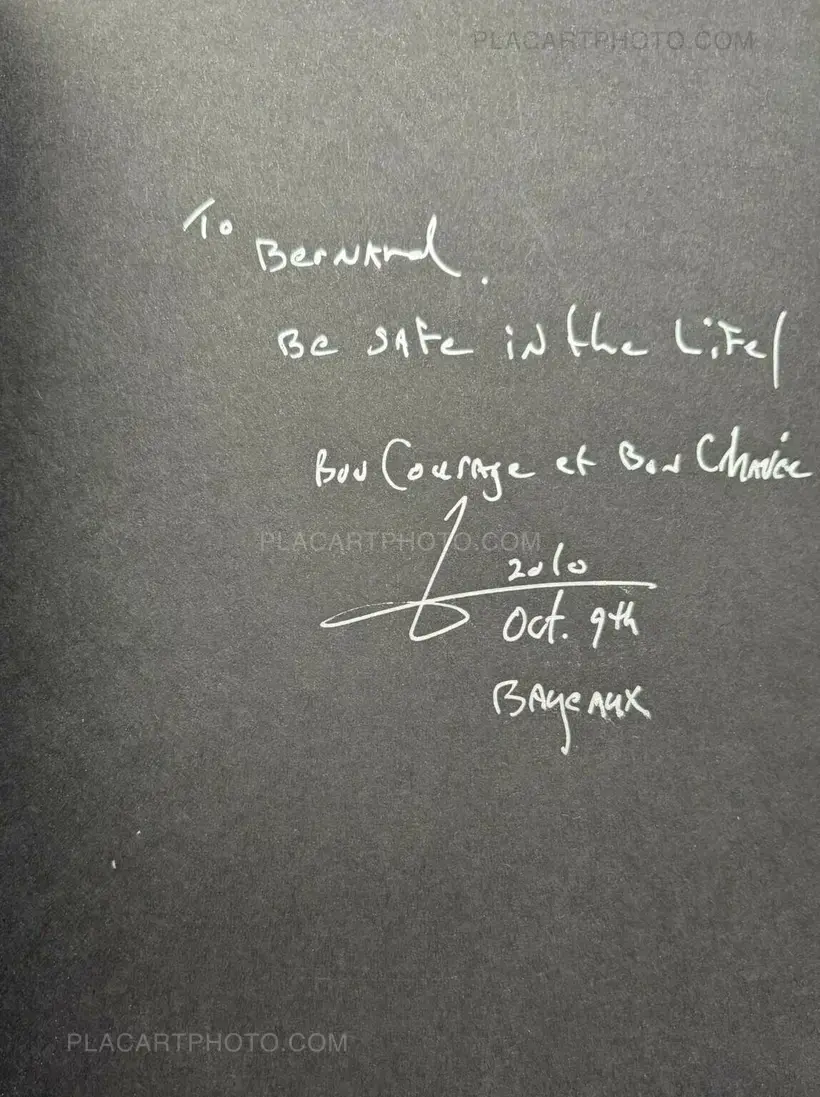 PLACARTPHOTO.COM
To
Bernard.
Be safe in the Life/
Bon Courage et Bon Chance
PLACARTPHOTO.COM
2010
Oct. 9th
Bayeaux
PLACARTPHOTO.COM